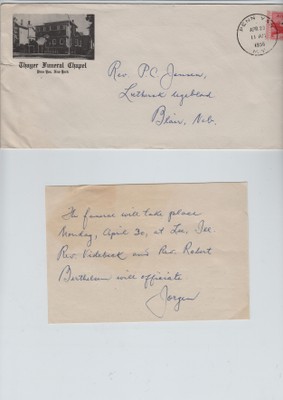 Thayer Funeral Chapel
Penn Yan, New York
PENN YAN
APR 2
11 AM
N.Y.
Rev. P.C. Jensen,
Luthersk Ugeblad
Blair, Neb.
The funeral will take place
Monday, April 30, at Lee, Ill.
Rev. Videbeck and Rev. Robert
Berthelsen will officiate
Jorgen